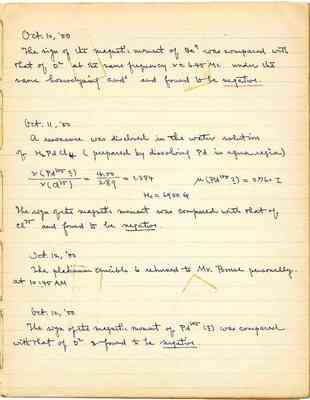 Oct. 10, '50
The sign of the magnetic moment of Be⁹ was compared with
that of O¹⁷ at the same frequency ν = 6.45 Mc. under the
same homodyning cond. and found to be negative.
Oct. 11, '50
A resonance was disclosed in the water solution
of H₂PdCl₄ (prepared by dissolving Pd in aqua-regia)
ν(Pd¹⁰⁵ ?) / ν(Cl³⁵) = 4.00 / 2.89 = 1.384 μ(Pd¹⁰⁵ ?) = I
H₀ = 6900 G
The sign of its magnetic moment was compared with that of
Cl³⁵ and found to be negative.
Oct. 12, '50
The platinum crucible is returned to Mr. personally.
at 10:45 AM
Oct. 12, '50
The sign of the magnetic moment of Pd¹⁰⁵ (?) was compared
with that of O¹⁷ & found to be negative.